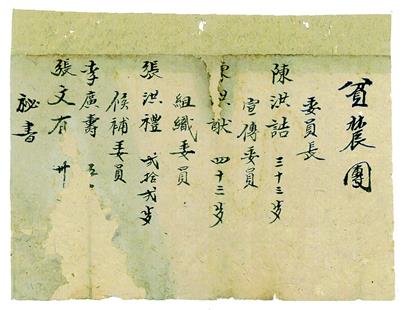 貧農團
委員長
陳洪誥 三十三岁
宣傳委員
洪猷 四十三岁
組織委員
張洪禮 弍拾弍岁
候補委員
李廣壽 五
張文有 卅
祕書